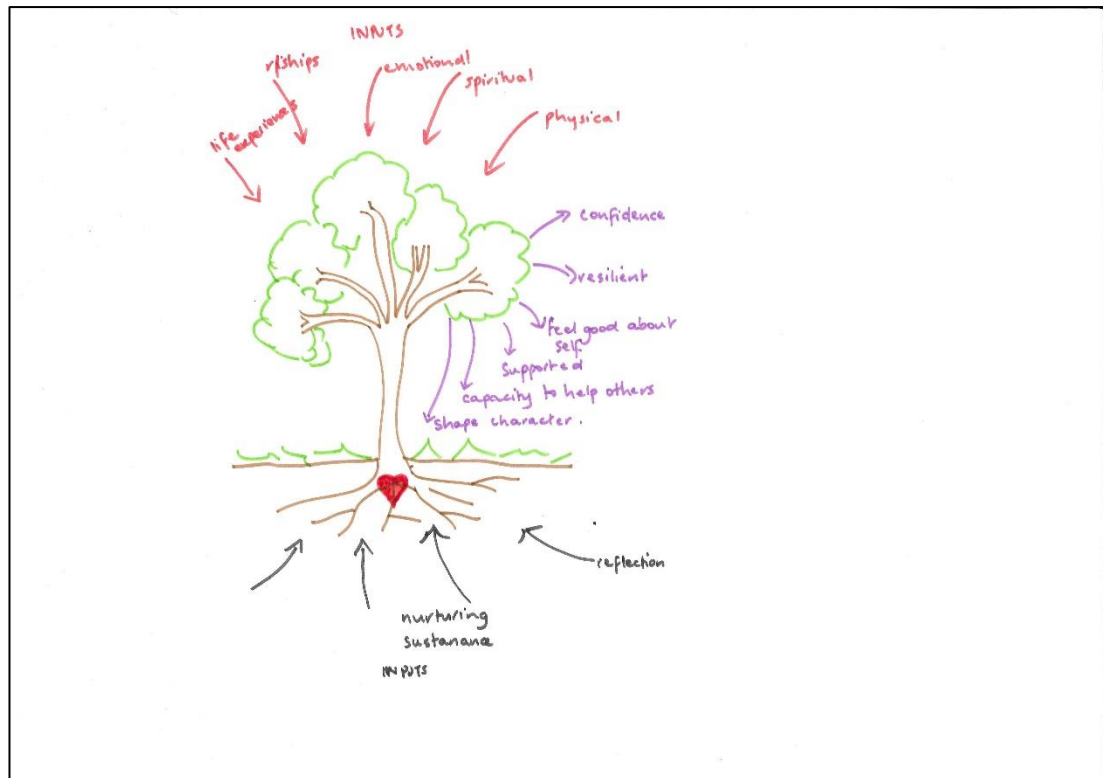 INPUTS
r/ships
emotional
spiritual
life
experiences
physical
confidence
resilient
feel good about
self
supported
capacity to help others
shape character.
reflection
nurturing
sustanance
INPUTS